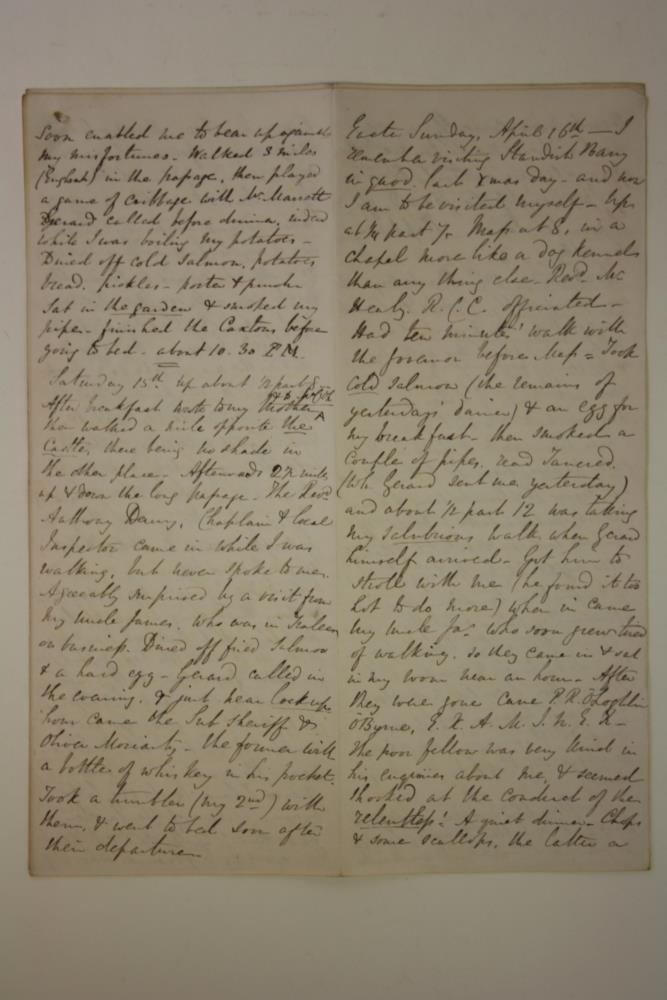 Soon enabled me to bear up against
my misfortunes - Walked 3 miles
(English) in the passage, then played
a game of cribbage with Mc Marrott
Gerard called before dinner, indeed
while I was boiling my potatoes -
Dined off cold Salmon, potatoes
bread, pickles - porter & punch
Sat in the garden & smoked my
pipe - finished the Caxtons before
going to bed - about 10.30 P.M.
Saturday 15th up about 1/2 past 8
After breakfast wrote to my Mother
then walked a mile opposite the
Castle, there being no shade in
the other place - Afterwards 2 1/2 miles
up & down the long passage - The Revd
Anthony Denny, Chaplain & local
Inspector came in while I was
walking, but never spoke to me.
Agreeably surprised by a visit from
my Uncle James, who was in Tralee
on business. Dined off fried Salmon
& a hard egg - Gerard called in
the evening, & just near lock up
hour came the Sub Sheriff &
Oliver Moriarty - the former with
a bottle of whiskey in his pocket.
Took a tumbler (my 2nd) with
them, & went to bed soon after
their departure
Easter Sunday, April 16th - I
remember visiting Standish Barry
in quod last Xmas day - and now
I am to be visited myself - Up
at 1/4 past 7. Mass at 8, in a
chapel more like a dog kennel
than any thing else - Revd. Mc
Henly. R.C.C. officiated -
Had ten minutes' walk with
the governor before Mass = Took
cold salmon (the remains of
yesterdays' dinner) & an egg for
my breakfast - then smoked a
couple of pipes, read Tancred,
(wh Gerard sent me yesterday)
and about 1/2 past 12 was taking
my salubrious walk when Gerard
himself arrived - Got him to
stroll with me (he found it too
hot to do more) when in came
my Uncle Jas. who soon grew tired
of walking, so they came in & sat
in my room near an hour - After
they were gone came P.R. O'Loghlin
O'Byrne, E. X. A. M. I. N. E. R -
The poor fellow was very kind in
his enquiries about me, & seemed
shocked at the conduct of the
relentless! A quiet dinner - Chops
& some scallops, the latter a